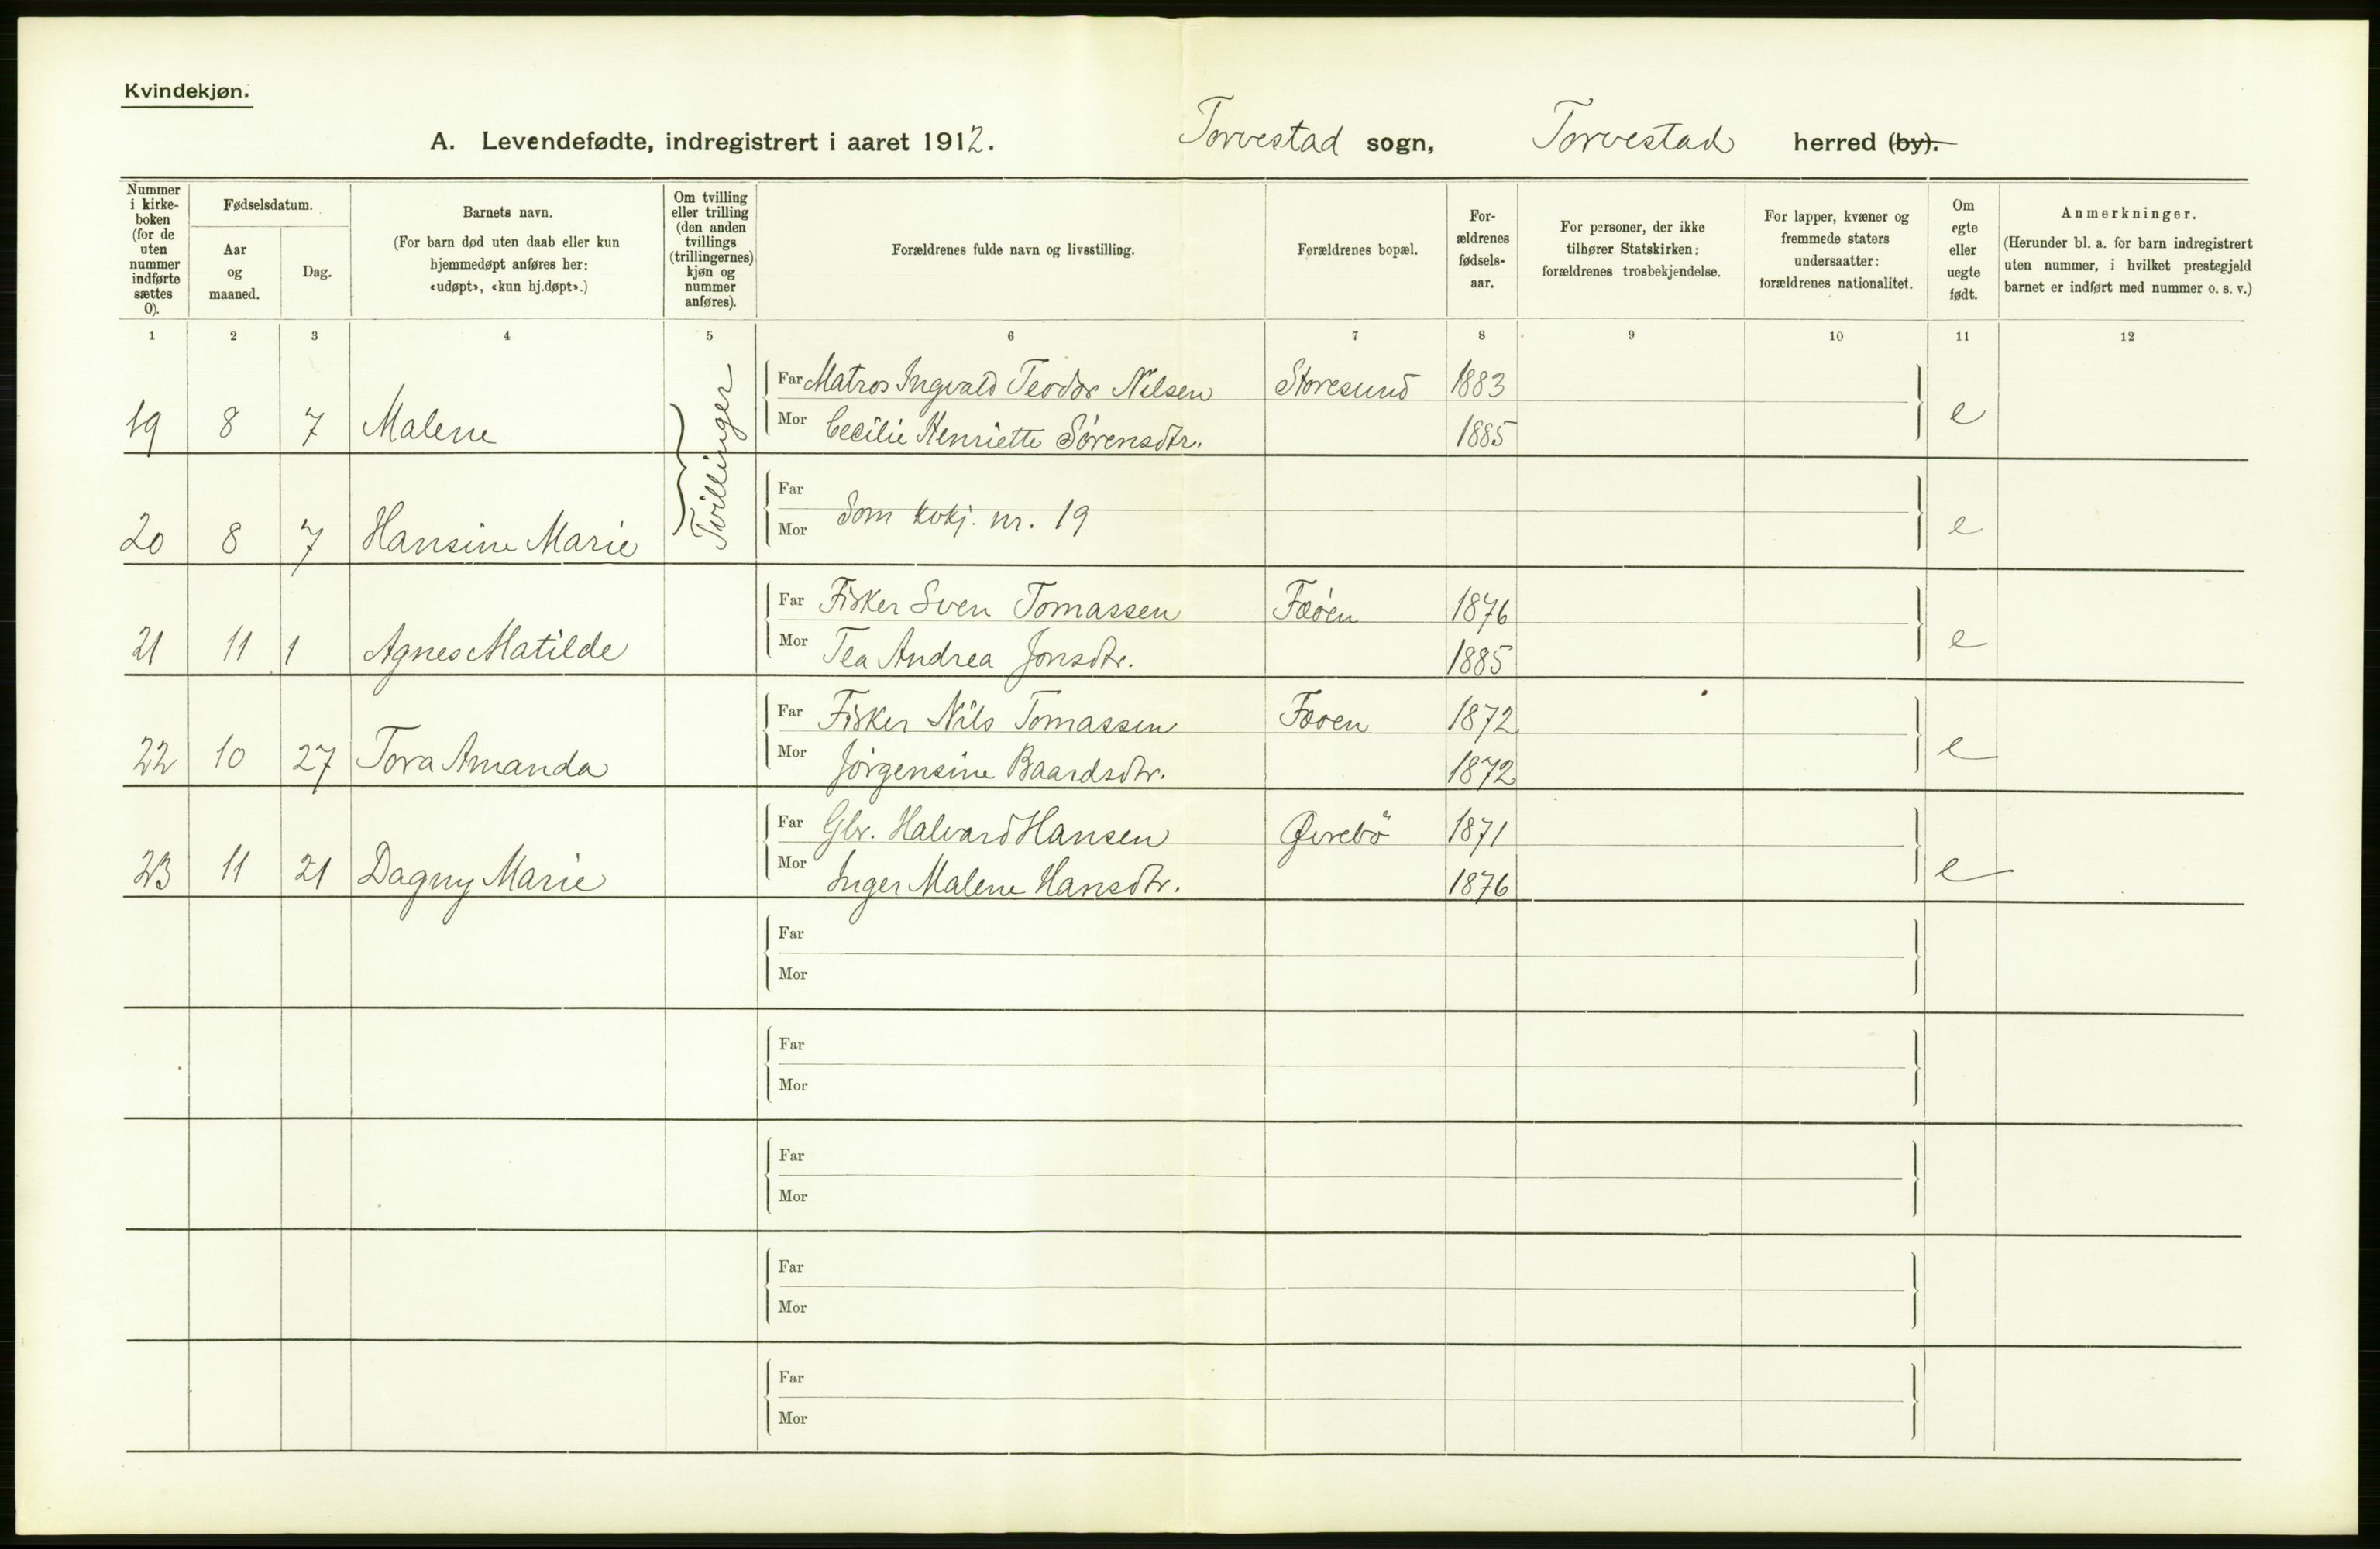 Kvindekjøn.
A. Levendefødte, indregistrert i aaret 1912. Torvestad sogn, Torvestad herred (by).
Nummer i kirke-boken (for de uten nummer indførte sættes 0).
Fødselsdatum.
Aar og maaned.
Dag.
Barnets navn.
(For barn død uten daab eller kun hjemmedøpt anføres her: «udøpt», «kun hj.døpt».)
Om tvilling eller trilling (den anden tvillings (trillingernes) kjøn og nummer anføres).
Forældrenes fulde navn og livsstilling.
Forældrenes bopæl.
For-ældrenes fødsels-aar.
For personer, der ikke tilhører Statskirken: forældrenes trosbekjendelse.
For lapper, kvæner og fremmede staters undersaatter: forældrenes nationalitet.
Om egte eller uegte født.
Anmerkninger.
(Herunder bl. a. for barn indregistrert uten nummer, i hvilket prestegjeld barnet er indført med nummer o. s. v.)
1 2 3 4 5 6 7 8 9 10 11 12
Far Matros Ingvald Teodor Nilsen Storesund 1883
19 8 7 Malene Tvillinger Mor Cecilie Henriette Sörensdtr. 1885 e
Far
20 8 7 Hansine Marie Mor Som kvkj. nr. 19 e
Far Fisker Sven Tomassen Fæöen 1876
21 11 1 Agnes Matilde Mor Tea Andrea Jonsdtr. 1885 e
Far Fisker Nils Tomassen Fæoen 1872
22 10 27 Tora Amanda Mor Jörgensine Baardsdtr. 1872 e
Far Gbr. Halvard Hansen Øvrebö 1871
23 11 21 Dagny Marie Mor Inger Malene Hansdtr. 1876 e
Far
Mor
Far
Mor
Far
Mor
Far
Mor
Far
Mor